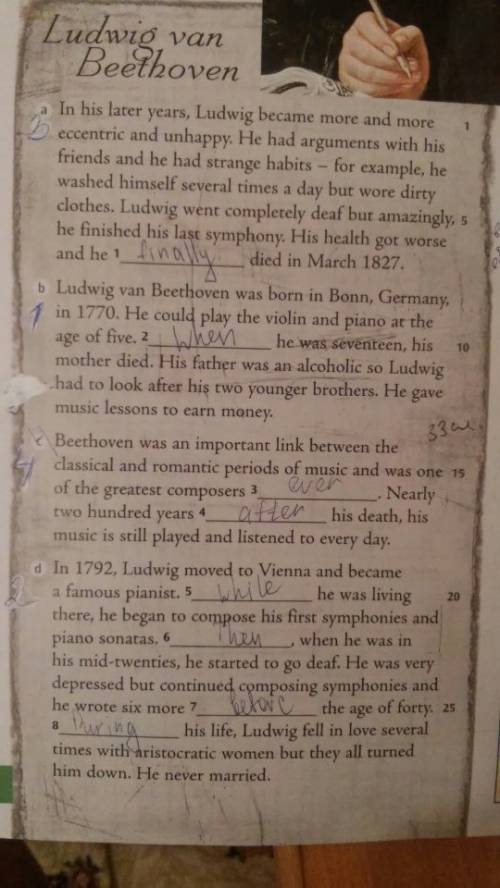 Ludwig van
Beethoven
a In his later years, Ludwig became more and more 1
3 eccentric and unhappy. He had arguments with his
friends and he had strange habits – for example, he
washed himself several times a day but wore dirty
clothes. Ludwig went completely deaf but amazingly, 5
he finished his last symphony. His health got worse
and he 1 finally died in March 1827.
b Ludwig van Beethoven was born in Bonn, Germany,
1 in 1770. He could play the violin and piano at the
age of five. 2 When he was seventeen, his 10
mother died. His father was an alcoholic so Ludwig
had to look after his two younger brothers. He gave
music lessons to earn money.
c Beethoven was an important link between the
4 classical and romantic periods of music and was one 15
of the greatest composers 3 ever . Nearly
two hundred years 4 after his death, his
music is still played and listened to every day.
d In 1792, Ludwig moved to Vienna and became
2 a famous pianist. 5 while he was living 20
there, he began to compose his first symphonies and
piano sonatas. 6 Then , when he was in
his mid-twenties, he started to go deaf. He was very
depressed but continued composing symphonies and
he wrote six more 7 before the age of forty. 25
8 During his life, Ludwig fell in love several
times with aristocratic women but they all turned
him down. He never married.